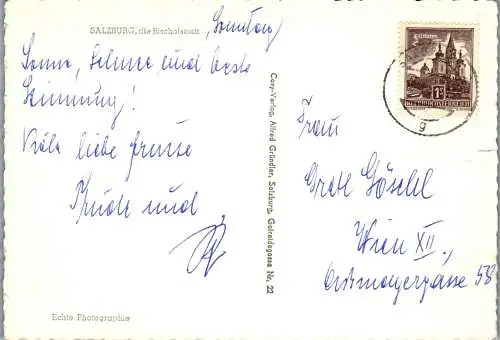 SALZBURG, die Bischofsstadt
(Sonntag)
Sonne, Schnee und beste
Stimmung!
Viele liebe Grüsse
Trude und
Echte Photographie
Cosy-Verlag, Alfred Gründler, Salzburg, Getreidegasse Nr. 22
Frau
Grete Göschl
Wien XII.,
58
g